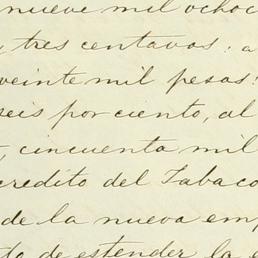 nueve mil ochoc
, tres centavos: a
veinte mil pesos:
seis por ciento, al
, cincuenta mil
credito del Tabaco
de la nueva emp
to de estender la e